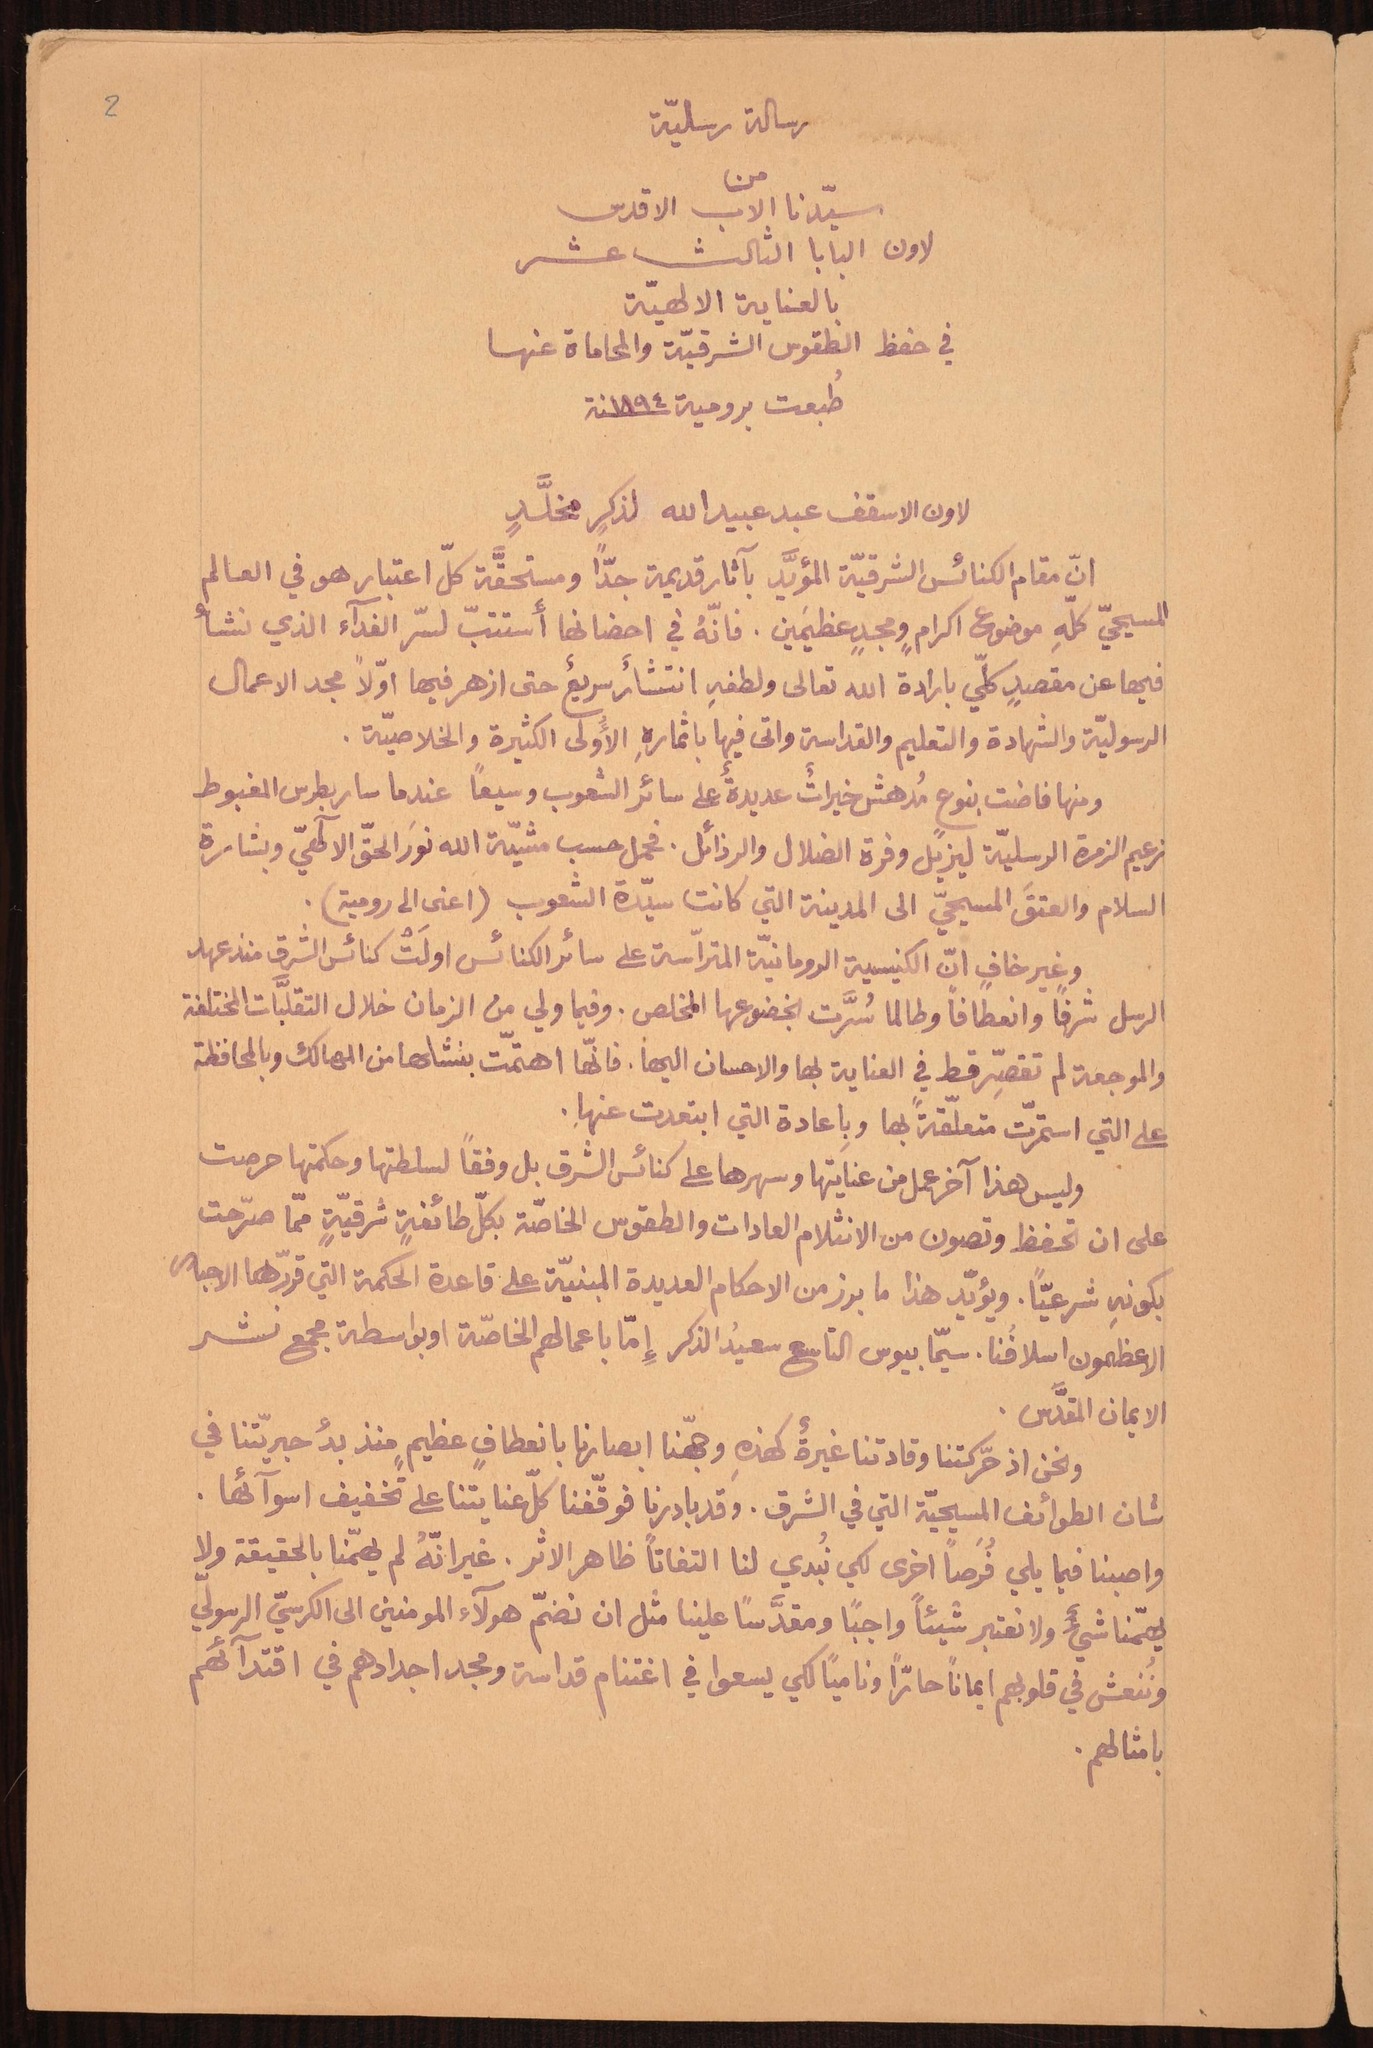 2
رسالة رسليّة
من
سيّدنا الاب الاقدس
لاون البابا الثالث عشر
بالعناية الالهيّة
في حفظ الطقوس الشرقيّة والمحاماة عنها
طُبعت برومية سنة ١٨٩٤
لاون الاسقف عبد عبيد الله لذكرٍ مخلَّدٍ
انّ مقام الكنائس الشرقيّة المؤيَّد بآثار قديمة جدّاً ومستحقَّة كلّ اعتبار هو في العالم
المسيحيّ كلّهِ موضوع اكرامٍ ومجدٍ عظيمَين . فانّهُ في احضانها أستتبّ لسرّ الفدآء الذي نشأ
فيها عن مقصدٍ كلّي بارادة الله تعالى ولطفهِ انتشارٌ سريعٌ حتى ازهر فيها اوّلاً مجد الاعمال
الرسوليّة والشهادة والتعليم والقداسة واتى فيها باثمارهِ الأُولى الكثيرة والخلاصيّة .
ومنها فاضت بنوع مُدهش خيراتٌ عديدةٌ على سائر الشعوب وسيعاً عندما سار بطرس المغبوط
زعيم الزمرة الرسليّة ليزيل وفرة الضلال والرذائل . فحمل حسب مشيّة الله نوَر الحقّ الالٓهيّ وبشارة
السلام والعتقَ المسيحيَّ الى المدينة التي كانت سيّدة الشعوب (اعنى الى رومية) .
وغير خافٍ انّ الكنيسة الرومانيّة المترأّسة على سائر الكنائس اولَتْ كنائس الشرق منذ عهد
الرسل شرفًا وانعطافاً وطالما سُرَّت بخضوعها المخلص . وفيما ولي من الزمان خلال التقلّبات المختلفة
والموجعة لم تقصِّر قط في العناية بها والاحسان اليها . فانّها اهتمّت بنشلها من المهالك وبالمحافظة
على التي استمرّت متعلّقةً بها وبِاعادة التي ابتعدت عنها .
وليس هذا آخر عمل من عنايتها وسهرها على كنائس الشرق بل وفقاً لسلطتها وحكمتها حرصت
على ان تحفظ وتصون من الانثلام العادات والطقوس الخاصّة بكلّ طائفةٍ شرقيّةٍ ممّا صرّحت
بكونهِ شرعيّاً . ويؤيّد هذا ما برز من الاحكام العديدة المبنيّة على قاعدة الحكمة التي قرّرها الاحبار
الاعظمون اسلافُنا . سيّما بيوس التاسع سعيدُ الذكر إِمّا باعمالهم الخاصّة او بواسطة مجمع نشر
الايمان المقدَّس .
ونحن اذ حرّكتنا وقادتنا غيرةٌ كهذهِ وجهّنا ابصارنا بانعطافٍ عظيمٍ منذ بدُ حبريّتنا في
شان الطوائف المسيحيّة التي في الشرق . وقد بادرنا فوقّفنا كلّ عنايتنا على تخفيف اسوآئها .
واصبنا فيما يلي فُرَصاً اخرى لكي نُبدي لنا التفاتاً ظاهر الاثر . غير انّهُ لم يهمّنا بالحقيقة ولا
يهمّنا شيءٌ ولا نعتبر شيئاً واجبًا ومقدَّسًا علينا مثل ان نضمّ هولآء المومنين الى الكرسيّ الرسوليّ
ونُنعش في قلوبهم ايماناً حارّاً وناميًا لكي يسعوا في اغتنام قداسة ومجد اجدادهم في اقتدآئهم
بامثالهم .